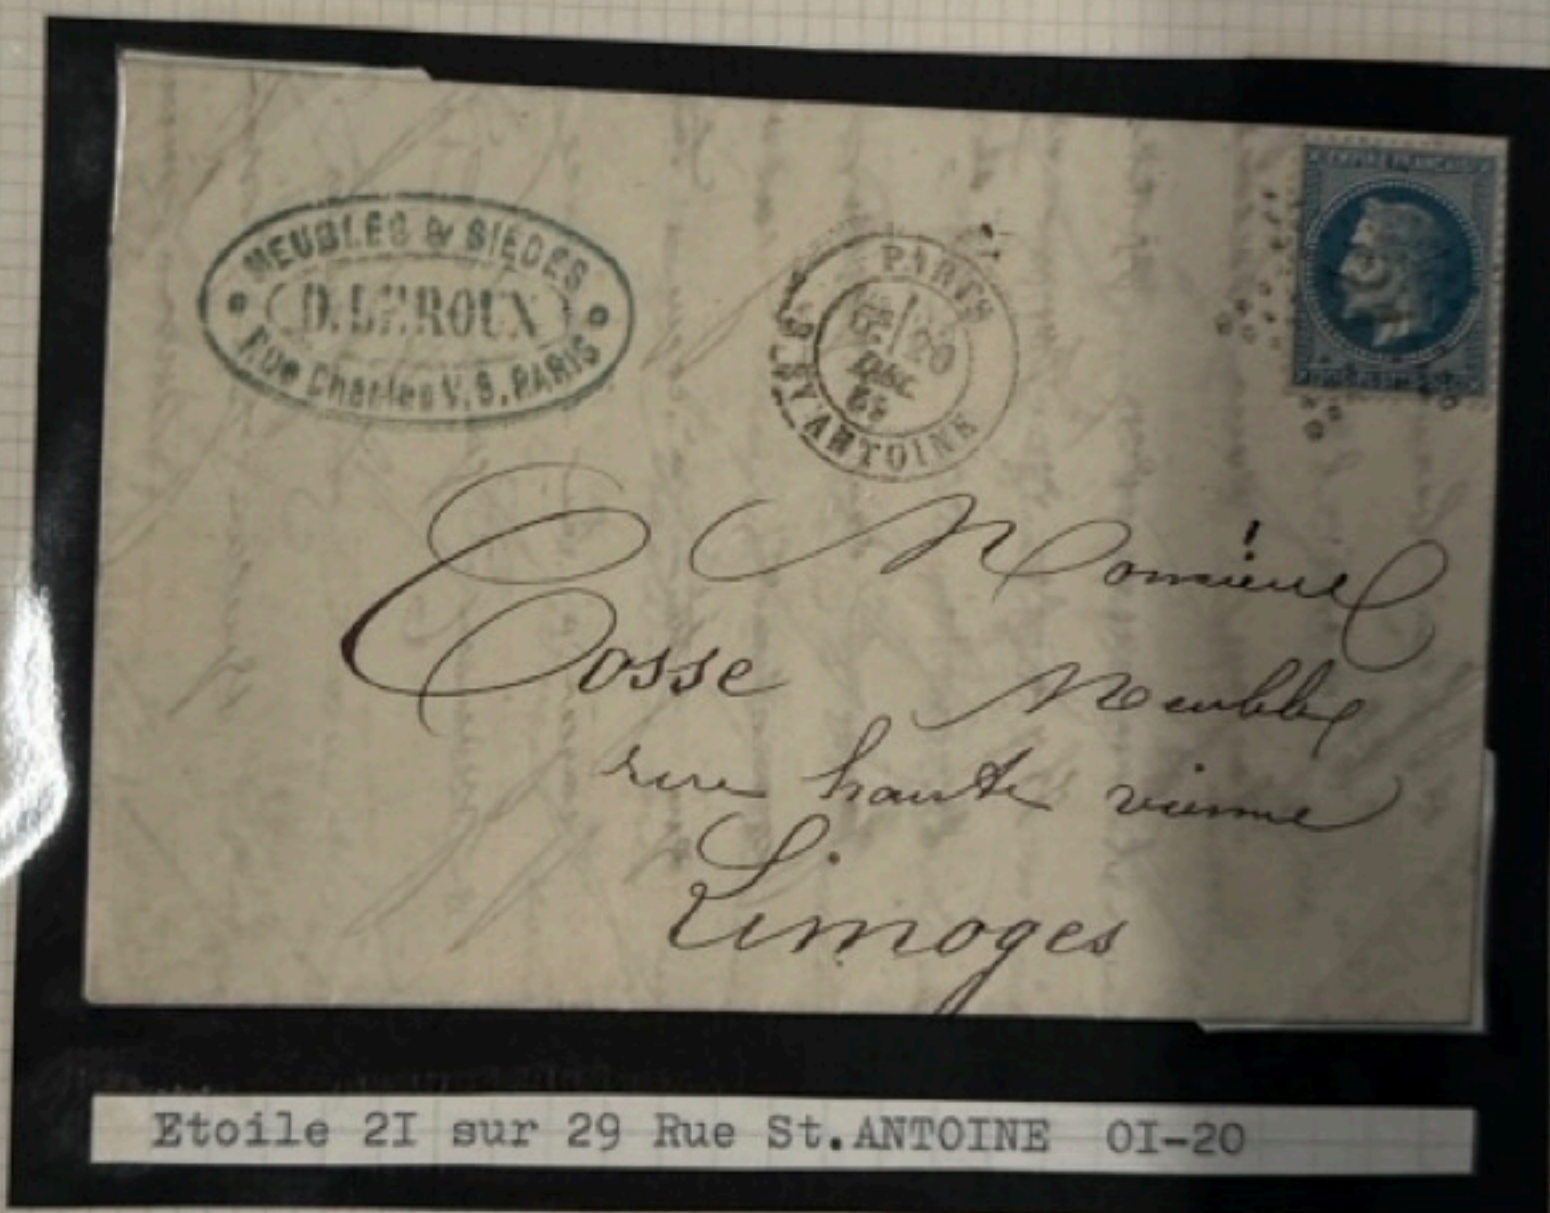 MEUBLES & SIÈGES
D. LEROUX
Rue Charles V. 8. PARIS
PARIS
20
DEC.
ANTOINE
EMPIRE FRANCAIS
Monsieur
Cosse Meubles
rue haute vienne
Limoges
Etoile 2I sur 29 Rue St.ANTOINE OI-20